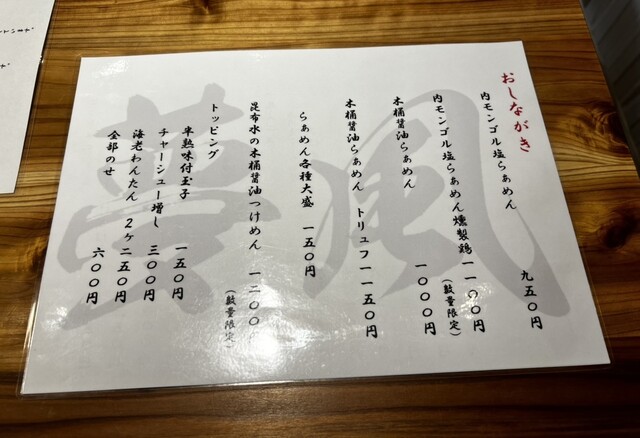 おしながき
内モンゴル塩らぁめん 九五〇円
内モンゴル塩らぁめん燻製鶏 一一〇〇円
(数量限定)
木桶醤油らぁめん 一〇〇〇円
木桶醤油らぁめん トリュフ 一一五〇円
らぁめん各種大盛 一五〇円
昆布水の木桶醤油つけめん 一二〇〇
(数量限定)
トッピング
半熟味付玉子 一五〇円
チャーシュー増し 三〇〇円
海老わんたん 2ヶ 二五〇円
全部のせ 六〇〇円
夢風